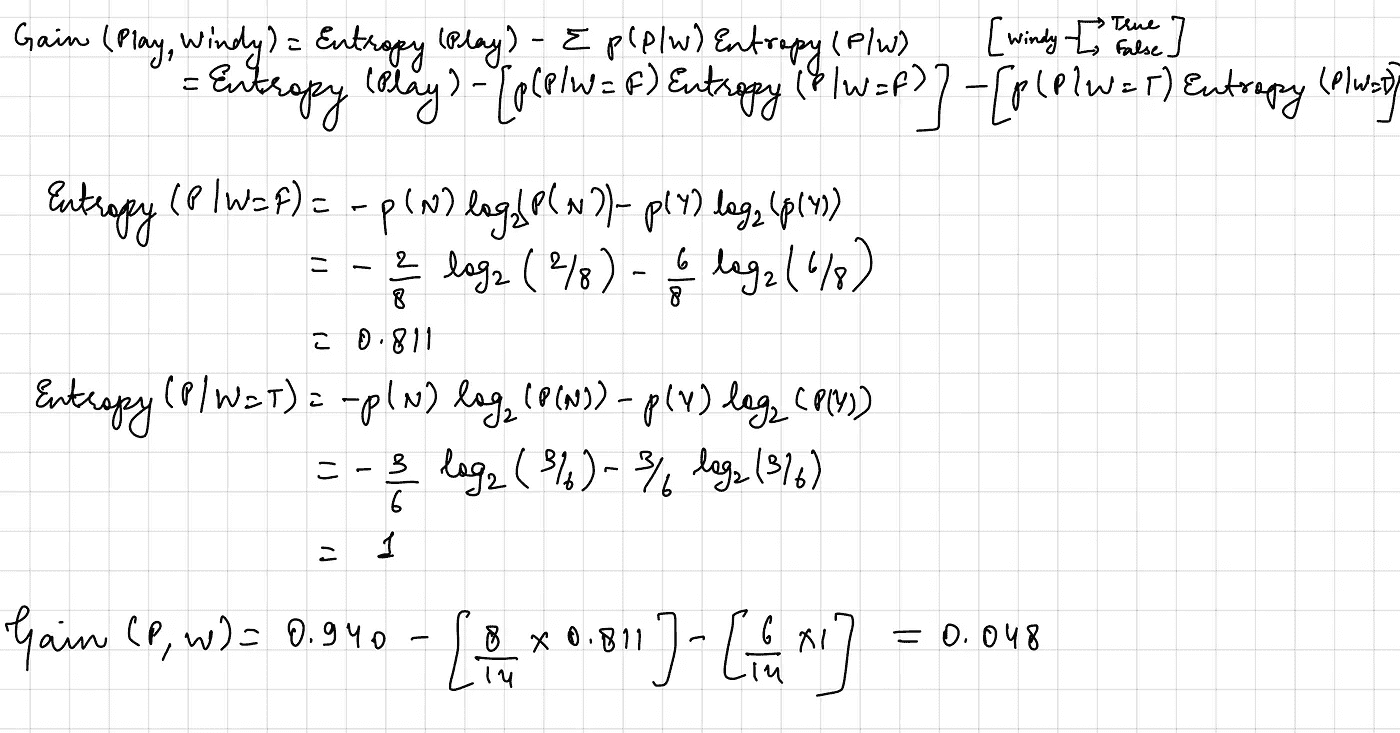 Gain (Play, Windy) = Entropy (Play) - Σ p(P/W) Entropy (P/W) [Windy → True → False]
= Entropy (Play) - [p(P/W=F) Entropy (P/W=F)] - [p(P/W=T) Entropy (P/W=T)]
Entropy (P/W=F) = - p(N) log₂(P(N)) - p(Y) log₂(p(Y))
= - 2/8 log₂ (2/8) - 6/8 log₂ (6/8)
= 0.811
Entropy (P/W=T) = -p(N) log₂ (P(N)) - p(Y) log₂ (P(Y))
= - 3/6 log₂ (3/6) - 3/6 log₂ (3/6)
= 1
Gain (P, W) = 0.940 - [8/14 × 0.811] - [6/14 ×1] = 0.048